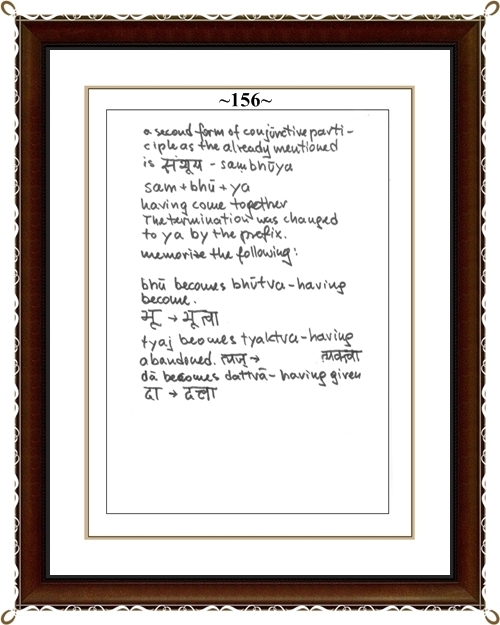 ~156~
a second form of conjunctive parti-
ciple as the already mentioned
is संभूय - sambhūya
sam+bhū+ya
having come together
The termination was changed
to ya by the prefix.
memorise the following:
bhū becomes bhūtva - having
become.
भू → भूत्वा
tyaj becomes tyaktva - having
abandoned. त्यज् → त्यक्त्वा
dā becomes dattvā - having given
दा → दत्त्वा